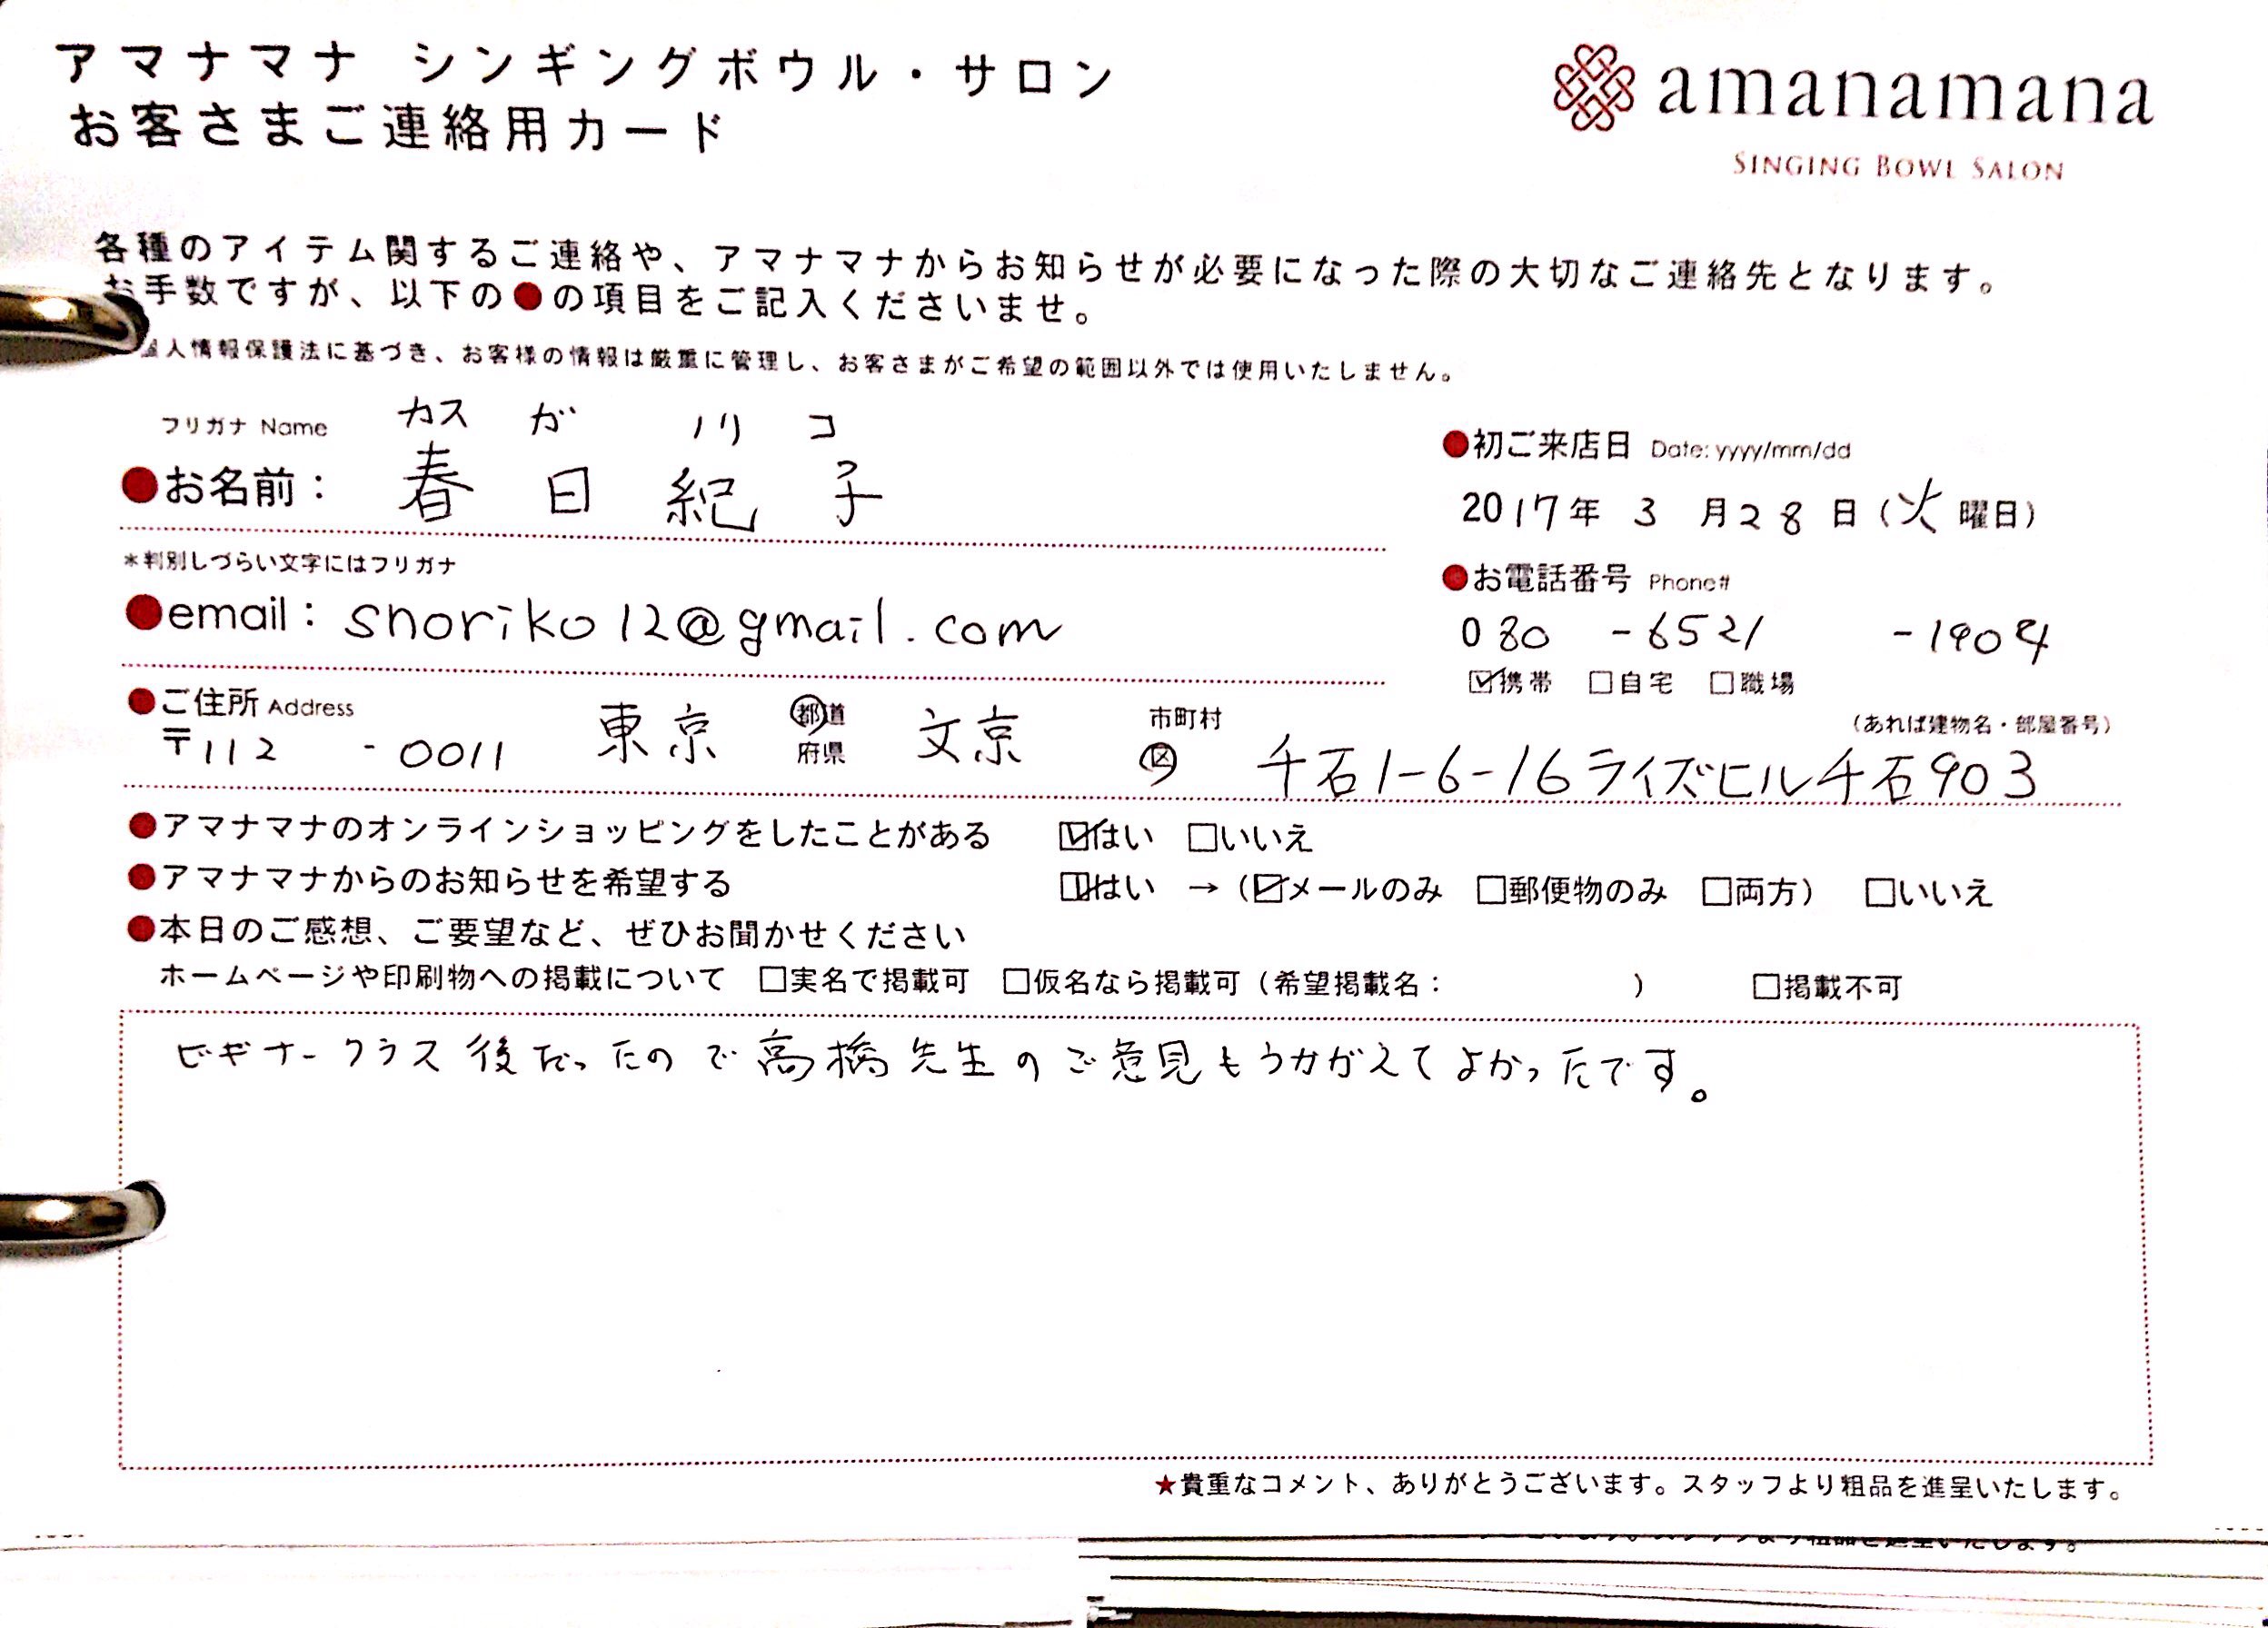 アマナマナ シンギングボウル・サロン
お客さまご連絡用カード
amanamana
SINGING BOWL SALON
各種のアイテム関するご連絡や、アマナマナからお知らせが必要になった際の大切なご連絡先となります。
お手数ですが、以下の●の項目をご記入くださいませ。
個人情報保護法に基づき、お客様の情報は厳重に管理し、お客さまがご希望の範囲以外では使用いたしません。
フリガナ Name カス ガ ノリ コ
●お名前： 春 日 紀 子
*判別しづらい文字にはフリガナ
●初ご来店日 Date: yyyy/mm/dd
2017年 3 月28 日（火 曜日）
●email： snoriko12@gmail.com
●お電話番号 Phone#
080 -6521 -1904
☑携帯 □自宅 □職場
●ご住所 Address
〒112 - 0011 東京 都道府県 文京 市町村区 千石1-6-16ライズヒル千石903
（あれば建物名・部屋番号）
●アマナマナのオンラインショッピングをしたことがある ☑はい □いいえ
●アマナマナからのお知らせを希望する ☑はい →（☑メールのみ □郵便物のみ □両方） □いいえ
●本日のご感想、ご要望など、ぜひお聞かせください
ホームページや印刷物への掲載について □実名で掲載可 □仮名なら掲載可（希望掲載名： ） □掲載不可
ビギナークラス後だったので高橋先生のご意見もうかがえてよかったです。
★貴重なコメント、ありがとうございます。スタッフより粗品を進呈いたします。